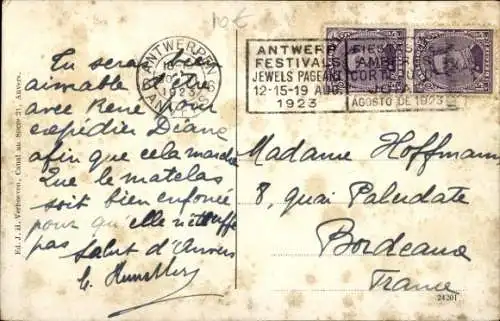 10€
ANTWERPEN 6
1923
ANVERS
ANTWERP
FESTIVALS
JEWELS PAGEANT
12-15-19 AUG.
1923
FIESTAS
AMBERES
CORTEJO
JOYAS
AGOSTO DE 1923
Tu seras bien
aimable d'être
avec René pour
expédier Diane
afin que cela marche
Que le matelas
soit bien enfoncé
pour qu'elle n'étouffe
pas Salut d'Anvers
Madame Hoffmann
8, quai Paludate
Bordeaux
France
Ed. J. H. Verhoeven, Canal au Sucre 21, Anvers.
24201